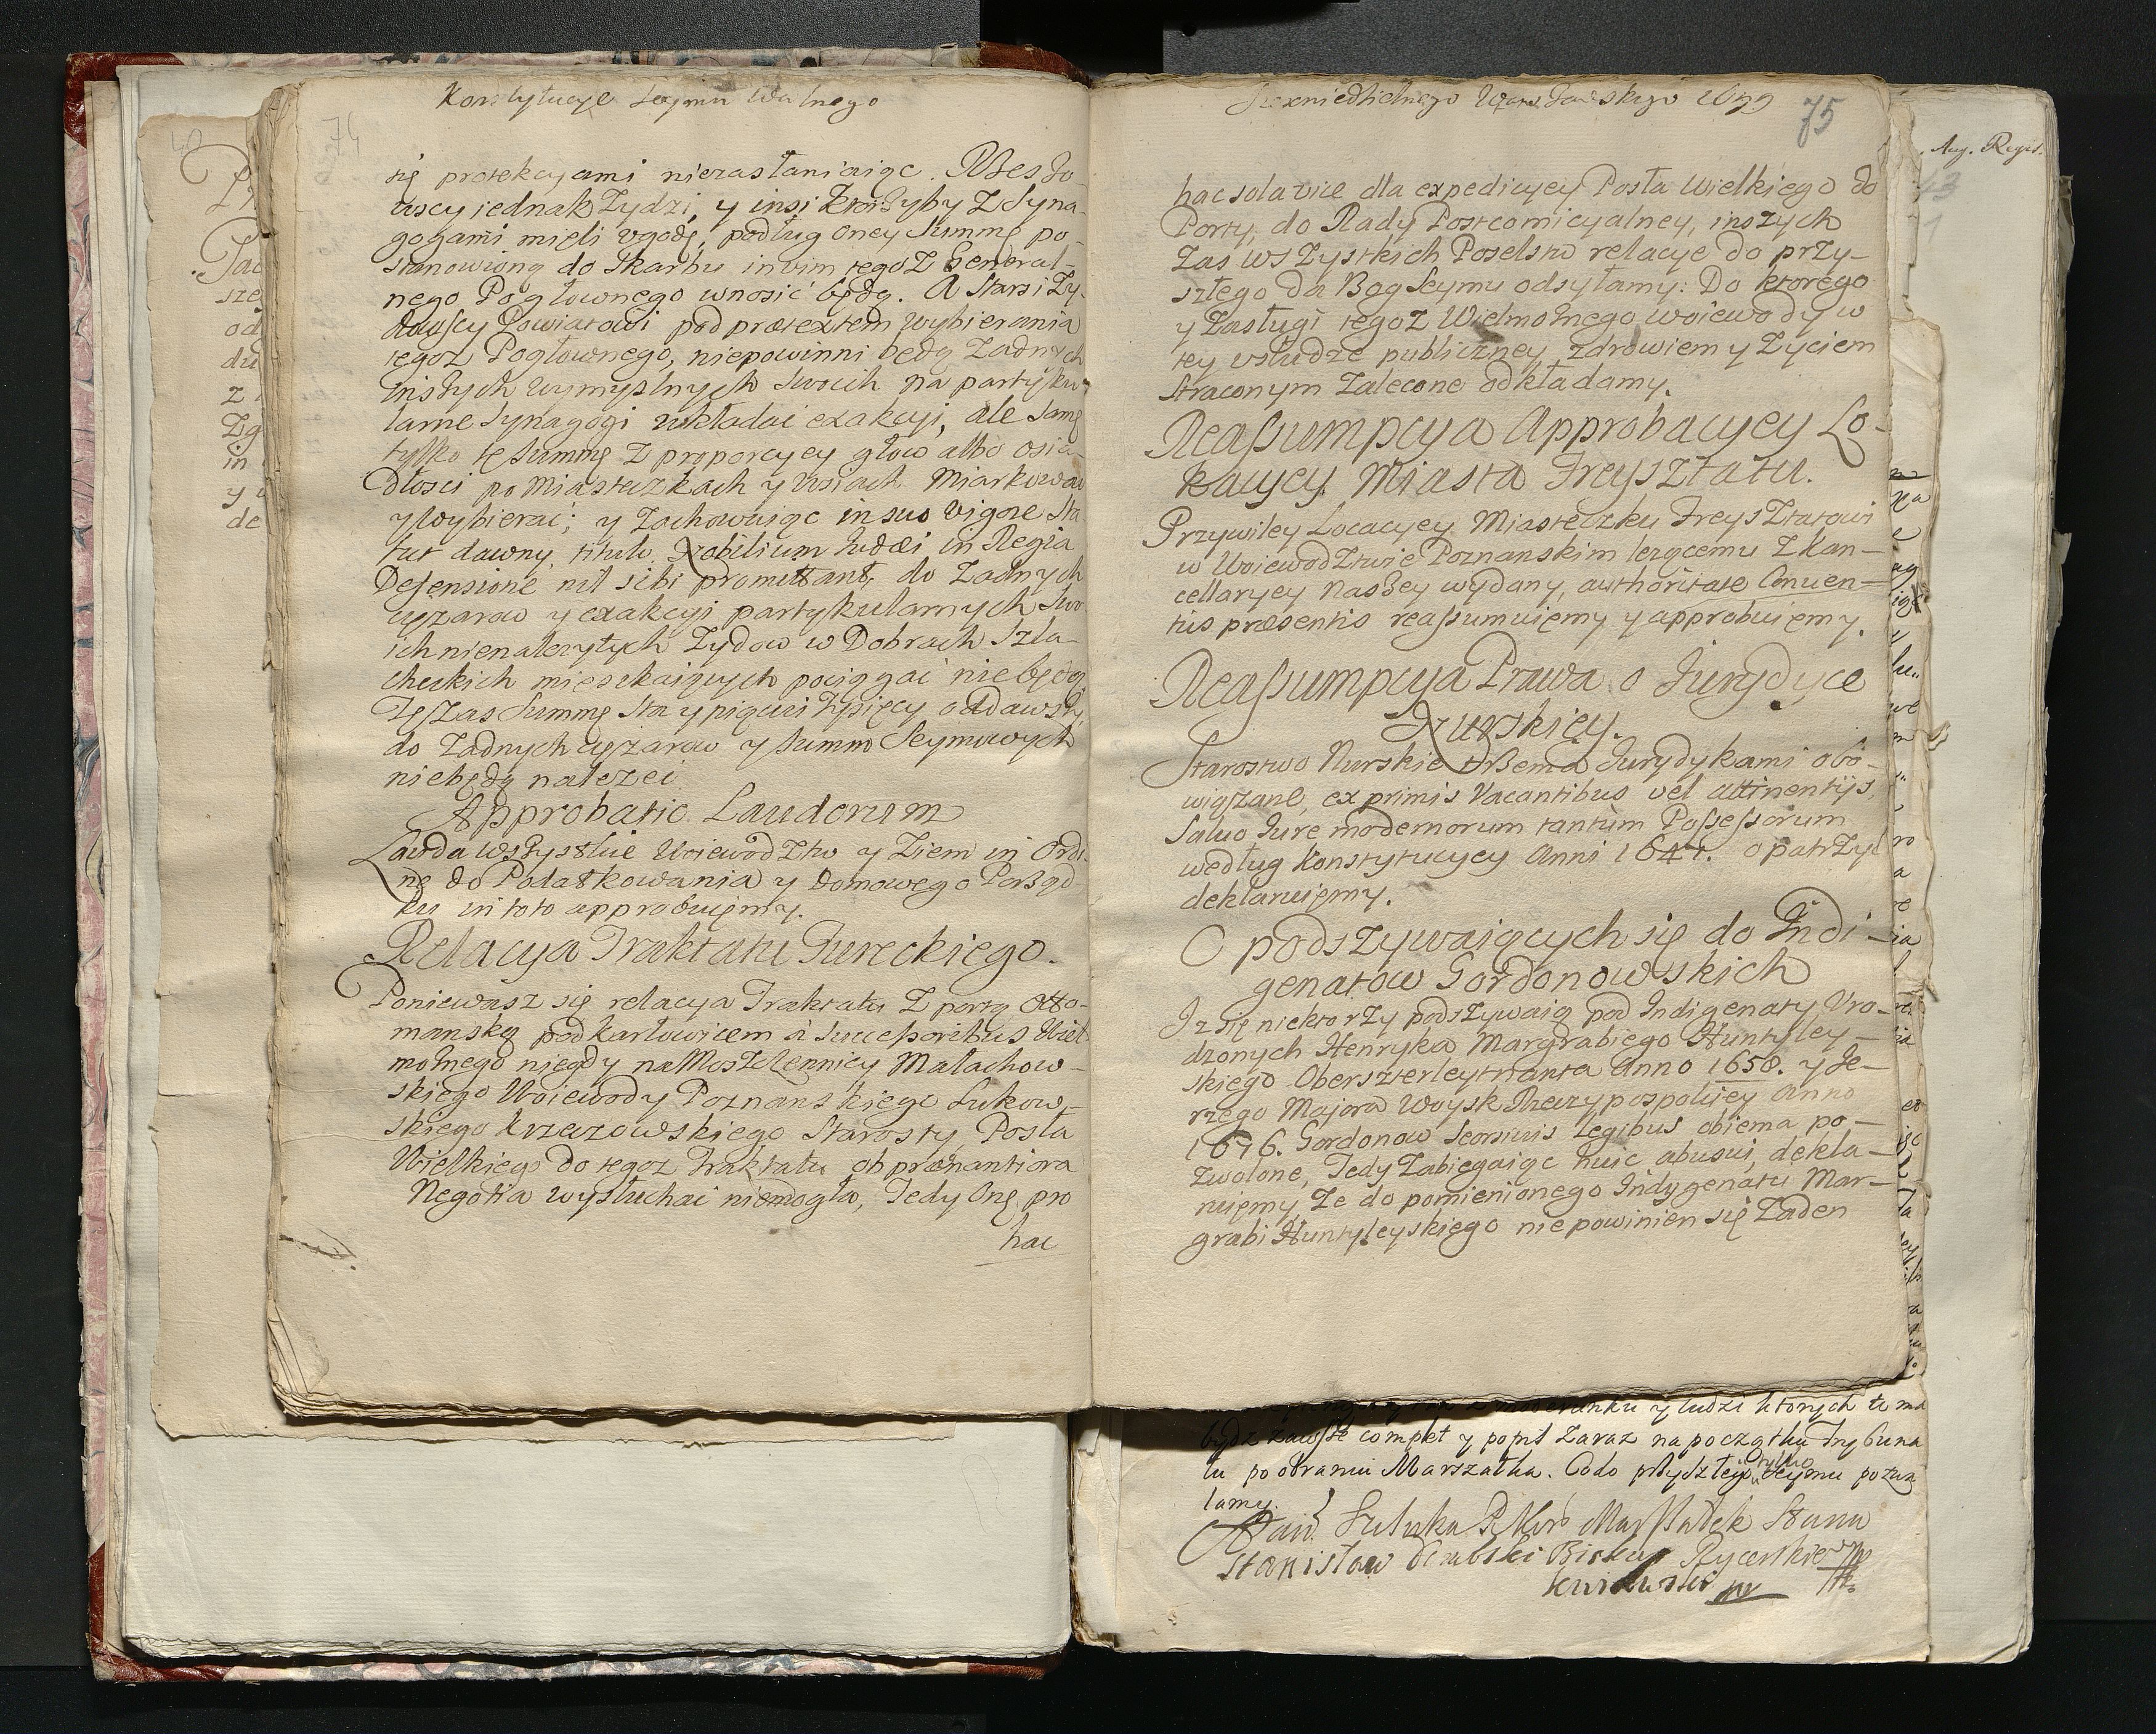 Konstytucye Seymu Walnego
74
się protekcyami niezasłaniaiąc. Wszędo-
wscy iednak Zydzi, y insi ktorzyby z Syna-
gogami mieli vgodę, podług oney Summę po-
stanowioną do Skarbu in vim tegoz General-
nego Pogłownego wnosić będą. A Starsi Zy-
dowscy Powiatowi pod prætextem wybierania
tegoz Pogłownego, niepowinni będą zadnych
inszych wymyslnych swoich na partyku-
larne Synagogi wkładać exakcyi, ale samę
tylko tę Summę z proporcyey głow albo osia-
dłosci po Miasteczkach y Wsiach Miarkować
y wybierać; y Zachowuiąc in suo vigore Sta-
tut dawny, titulo, Nobilium Judæi in Regia
Defensione nil sibi promittant, do Zadnych
cięzarow y exakcyi partykularnych swo-
ich nienalezytych Zydow w Dobrach Szla-
checkich mieszkaiących pociągać niebędą
Tęszas Summę Sta y piąciu tysięcy oddawszy,
do Zadnych cięzarow y Summ Seymowych
niebędą nalezeć.
Approbatio Laudorum
Lauda wszystkie Woiewodztw y Ziem in Ordi-
ne do Podatkowania y Domowego Porząd-
ku in toto approbuiemy.
Relacya Traktatu Tureckiego.
Poniewasz się relacya Traktatu z portą Otto-
manską pod Karłowicem à Successoribus Wiel-
moznego niegdy na Moszczennicy Małachow-
skiego Woiewody Poznanskiego Lukow-
skiego Krzeczowskiego Starosty, Posła
Wielkiego do tegoz Traktatu ob prænantiora
Negotia wysłuchać niemogła, Tedy Onę pro
hac
Szescniedzielnego Warszawskiego 1699
75
hac sola vice dla expedicyey Posła Wielkiego do
Porty, do Rady Postcomicyalney, inszych
Zas wszystkich Poselstw relacye do przy-
szłego da Bog Seymu odsyłamy: Do ktorego
y Zasługi tegoz Wielmoznego Woiewody w
tey vsłudze publiczney zdrowiem y Zyciem
straconym Zalecone odkładamy.
Reassumpcya Approbacyey Lo-
kacyey Miasta Freysztatu.
Przywiley Locacyey Miasteczku Freysztatowi
w Woiewodztwie Poznanskim lezącemu z Kan-
cellaryey Naszey wydany, authoritate Conuen-
tus præsentis reassumuiemy y approbuiemy.
Reassumpcya Prawa o Jurydyce
Nurskiey.
Starostwo Nurskie trzema Jurydykami obo-
wiązane, ex primis Vacantibus vel attinentijs,
saluo Jure modernorum tantùm Possessorum
według Konstytucyey Anni 1647. opatrzyć
deklaruiemy.
O podszywaiących się do Indi-
genatow Gordonowskich
Iz się niektorzy podszywaią pod Indigenaty Vro-
dzonych Henryka Margrabiego Huntyley-
skiego Oberszterleytnanta Anno 1658. y Je-
rzego Majora Woysk Rzeczypospolitey Anno
1676. Gordonow Seorsiuis Legibus obiema po-
zwolone, Tedy Zabiegaiąc huic abusui, dekla-
ruiemy, Ze do pomienionego Indygenatu Mar-
grabi Huntyleyskiego nie powinien się Zaden
Aug. Regis.
43
y ludzi ktorych tu ma
bydz zawsze complet y popis Zaraz na początku Trybuna
łu po obraniu Marszałka. Co do przyszłego tylko Seymu pozwa
lamy.
Stanisław Biskup